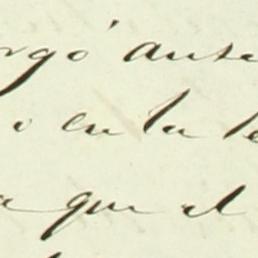 orgó ante
o en la te
a que el